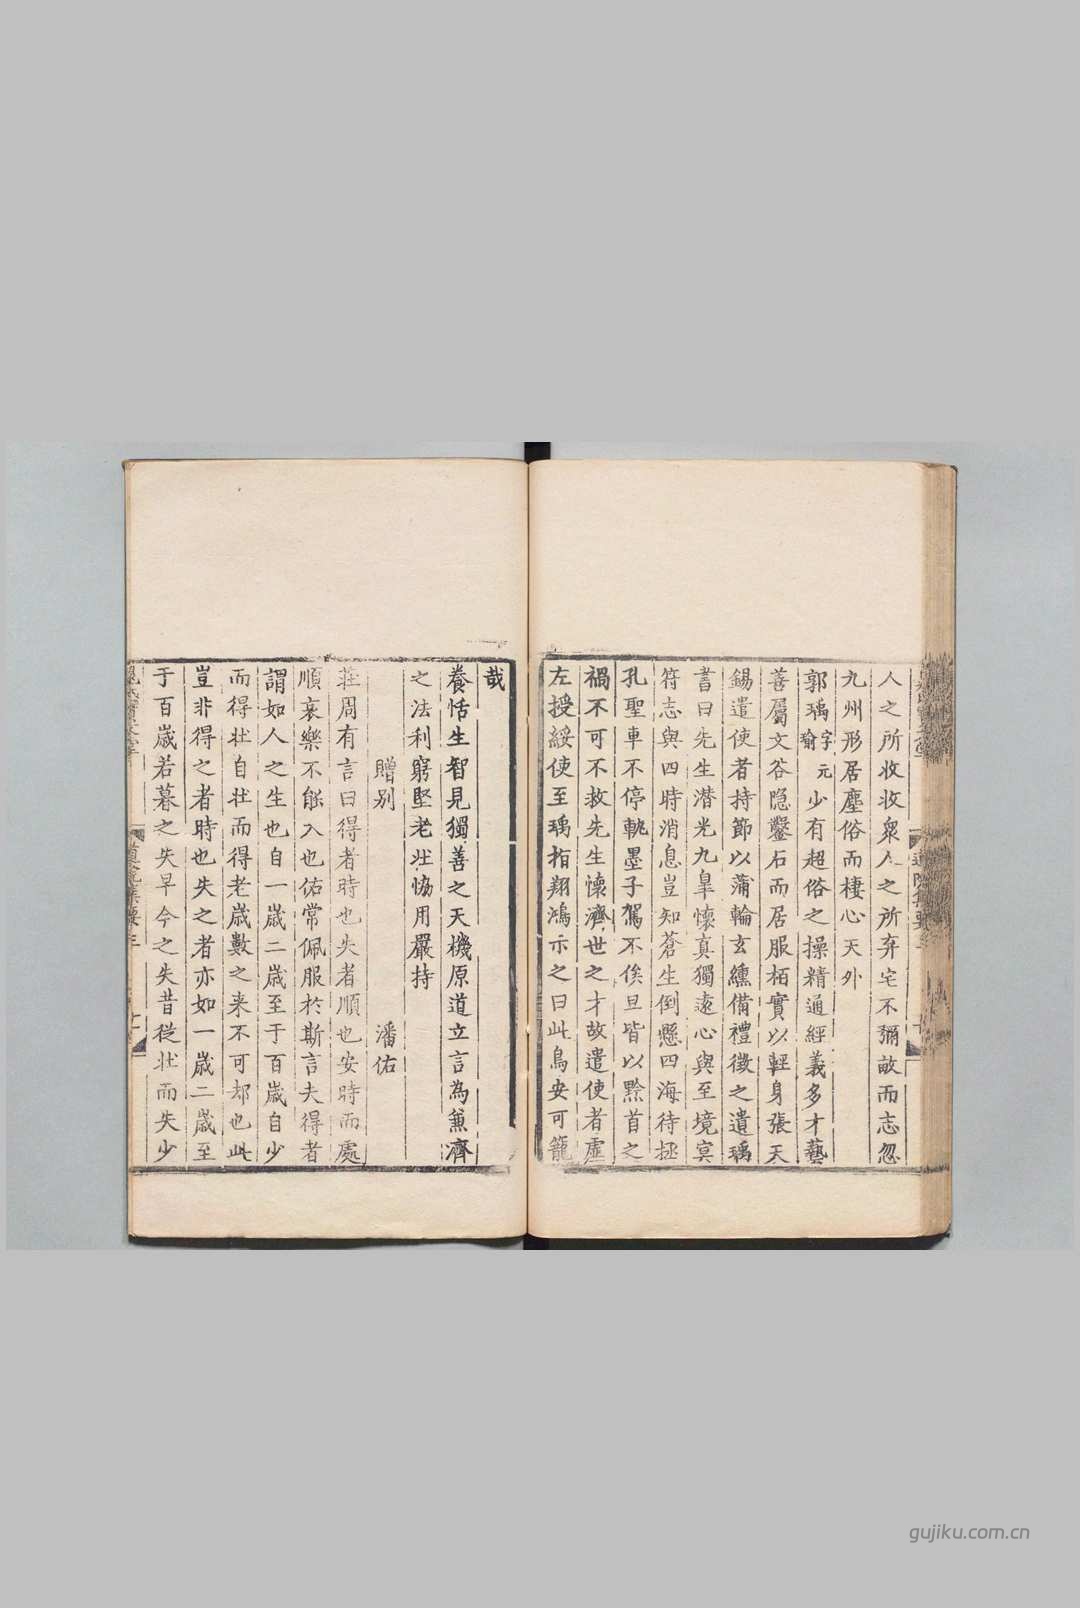 人之所收收衆人之所弃宅不彌畝而志忽
九州形居塵俗而棲心天外
郭瑀字元瑜少有超俗之操精通經義多才藝
善屬文谷隐鑿石而居服栢實以輕身張天
錫遣使者持節以蒲輪玄纁備禮徵之遺瑀
書曰先生潜光九臯懷真獨遠心與至境㝠
符志與四時消息豈知蒼生倒懸四海待拯
孔聖車不停軌墨子駕不俟旦皆以黔首之
禍不可不救先生懷濟世之才故遣使者虚
左授綏使至瑀指翔鴻示之曰此鳥安可籠
哉
養恬生智見獨善之天機原道立言為兼濟
之法利窮堅老壮恊用嚴持
贈别 潘佑
莊周有言曰得者時也失者順也安時而處
順哀樂不能入也佑常佩服於斯言夫得者
謂如人之生也自一歳二歳至于百歳自少
而得壮自壮而得老歳數之来不可却也此
豈非得之者時也失之者亦如一歳二歳至
于百歳若暮之失早今之失昔從壮而失少
gujiku.com.cn